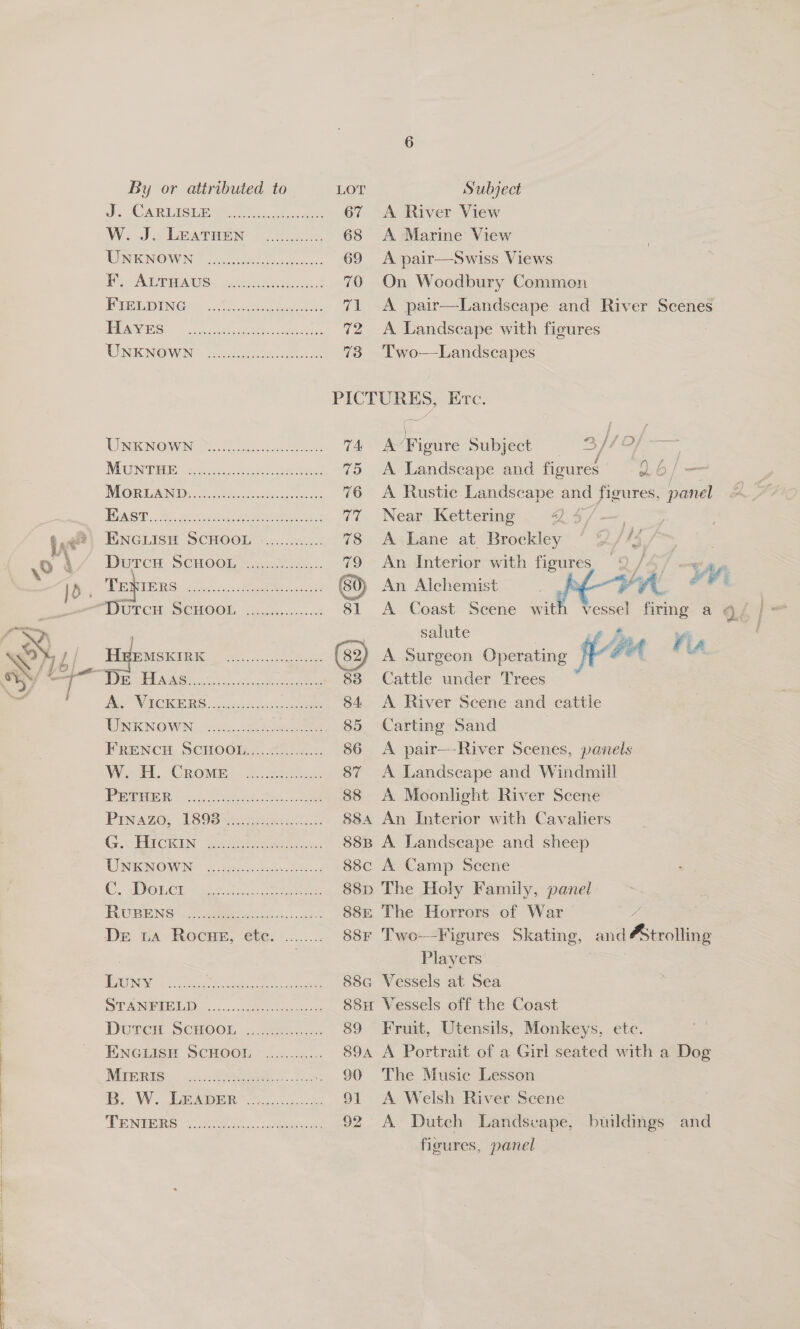 6
By or attributed to LOT Subject
J. CARLISLE ........................ 67 A River View
W. J. LEATHEN ............ 68 A Marine View
UNKNOWN ........................ 69 A pair—Swiss Views
F. ALTHAUS ........................ 70 On Woodbury Common
FIELDING ........................ 71 A pair—Landscape and River Scenes
HAYES ........................ 72 A Landscape with figures
UNKNOWN ........................ 73 Two—Landscapes
PICTURES, ETC.
UNKNOWN ........................ 74 A Figure Subject 3/10/—
MUNTHE ........................ 75 A Landscape and figures 26/—
MORLAND........................ 76 A Rustic Landscape and figures, panel
EAST........................ 77 Near Kettering
ENGLISH SCHOOL ............ 78 A Lane at Brockley
DUTCH SCHOOL ............... 79 An Interior with figures
TENIERS ........................ 80 An Alchemist
DUTCH SCHOOL ............... 81 A Coast Scene with vessel firing a
salute
HEEMSKIRK ........................ 82 A Surgeon Operating
DE HAAS........................ 83 Cattle under Trees
A. VICKERS........................ 84 A River Scene and cattle
UNKNOWN ........................ 85 Carting Sand
FRENCH SCHOOL............... 86 A pair—River Scenes, panels
W. H. CROME ............... 87 A Landscape and Windmill
PETHER ........................ 88 A Moonlight River Scene
PINAZO, 1893 ..................... 88A An Interior with Cavaliers
G. HICKIN ........................ 88B A Landscape and sheep
UNKNOWN ........................ 88C A Camp Scene
C. DOLCI ........................ 88D The Holy Family, panel
RUBENS ........................ 88E The Horrors of War
DE LA ROCHE, etc. ........ 88F Two—Figures Skating, and Strolling
Players
LUNY ........................ 88G Vessels at Sea
STANFIELD ........................ 88H Vessels off the Coast
DUTCH SCHOOL ............... 89 Fruit, Utensils, Monkeys, etc.
ENGLISH SCHOOL ............ 89A A Portrait of a Girl seated with a Dog
MIERIS ........................ 90 The Music Lesson
B. W. LEADER ............... 91 A Welsh River Scene
TENIERS ........................ 92 A Dutch Landscape, buildings and
figures, panel